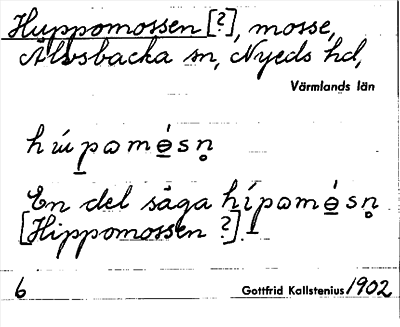 Huppomossen [?], mosse,
Älvsbacka sn, Nyeds hd,
Värmlands län
En del säga hípomésn
[Hippomossen ?].
6 Gottfrid Kallstenius 1902